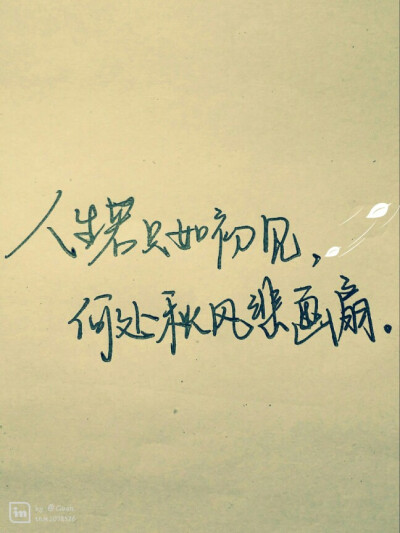 人生若只如初见，
何处秋风悲画扇。
in